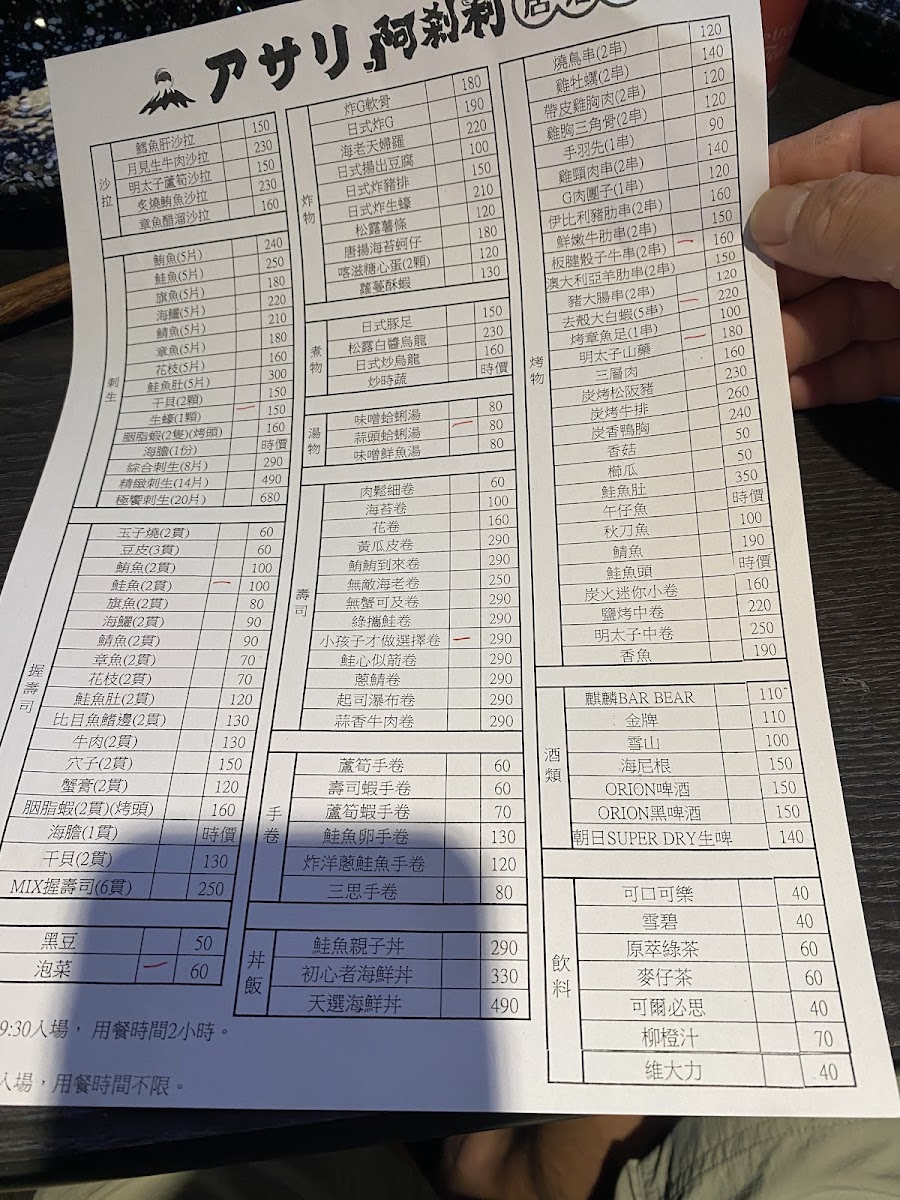 アサリ 阿剎利
沙拉
鱈魚肝沙拉 150
月見生牛肉沙拉 230
明太子蘆筍沙拉 150
炙燒鮪魚沙拉 230
章魚醋溜沙拉 160
刺生
鮪魚(5片) 240
鮭魚(5片) 250
旗魚(5片) 180
海鱺(5片) 220
鯖魚(5片) 210
章魚(5片) 180
花枝(5片) 160
鮭魚肚(5片) 300
干貝(2顆) 150
生蠔(1顆) 150
胭脂蝦(2隻)(烤頭) 160
海膽(1份) 時價
綜合刺生(8片) 290
精緻刺生(14片) 490
極饗刺生(20片) 680
握壽司
玉子燒(2貫) 60
豆皮(3貫) 60
鮪魚(2貫) 100
鮭魚(2貫) 100
旗魚(2貫) 80
海鱺(2貫) 90
鯖魚(2貫) 90
章魚(2貫) 70
花枝(2貫) 70
鮭魚肚(2貫) 120
比目魚鰭邊(2貫) 130
牛肉(2貫) 130
穴子(2貫) 150
蟹膏(2貫) 120
胭脂蝦(2貫)(烤頭) 160
海膽(1貫) 時價
干貝(2貫) 130
MIX握壽司(6貫) 250
黑豆 50
泡菜 60
9:30入場， 用餐時間2小時。
入場，用餐時間不限。
炸物
炸G軟骨 180
日式炸G 190
海老天婦羅 220
日式揚出豆腐 100
日式炸豬排 150
日式炸生蠔 210
松露薯條 120
唐揚海苔蚵仔 180
喀滋糖心蛋(2顆) 120
蘿蔓酥蝦 130
煮物
日式豚足 150
松露白醬烏龍 230
日式炒烏龍 160
炒時蔬 時價
湯物
味噌蛤蜊湯 80
蒜頭蛤蜊湯 80
味噌鮮魚湯 80
壽司
肉鬆細卷 60
海苔卷 100
花卷 160
黃瓜皮卷 290
鮪鮪到來卷 290
無敵海老卷 250
無蟹可及卷 290
綠攜鮭卷 290
小孩子才做選擇卷 290
鮭心似箭卷 290
蔥鯖卷 290
起司瀑布卷 290
蒜香牛肉卷 290
手卷
蘆筍手卷 60
壽司蝦手卷 60
蘆筍蝦手卷 70
鮭魚卵手卷 130
炸洋蔥鮭魚手卷 120
三思手卷 80
丼飯
鮭魚親子丼 290
初心者海鮮丼 330
天選海鮮丼 490
烤物
燒鳥串(2串) 120
雞牡蠣(2串) 140
帶皮雞胸肉(2串) 120
雞胸三角骨(2串) 120
手羽先(1串) 90
雞頸肉串(2串) 140
G肉團子(1串) 120
伊比利豬肋串(2串) 160
鮮嫩牛肋串(2串) 150
板腱骰子牛串(2串) 160
澳大利亞羊肋串(2串) 150
豬大腸串(2串) 120
去殼大白蝦(5串) 220
烤章魚足(1串) 100
明太子山藥 180
三層肉 160
炭烤松阪豬 230
炭烤牛排 260
炭香鴨胸 240
香菇 50
櫛瓜 50
鮭魚肚 350
午仔魚 時價
秋刀魚 100
鯖魚 190
鮭魚頭 時價
炭火迷你小卷 160
鹽烤中卷 220
明太子中卷 250
香魚 190
酒類
麒麟BAR BEAR 110
金牌 110
雪山 100
海尼根 150
ORION啤酒 150
ORION黑啤酒 150
朝日SUPER DRY生啤 140
飲料
可口可樂 40
雪碧 40
原萃綠茶 60
麥仔茶 60
可爾必思 40
柳橙汁 70
維大力 40